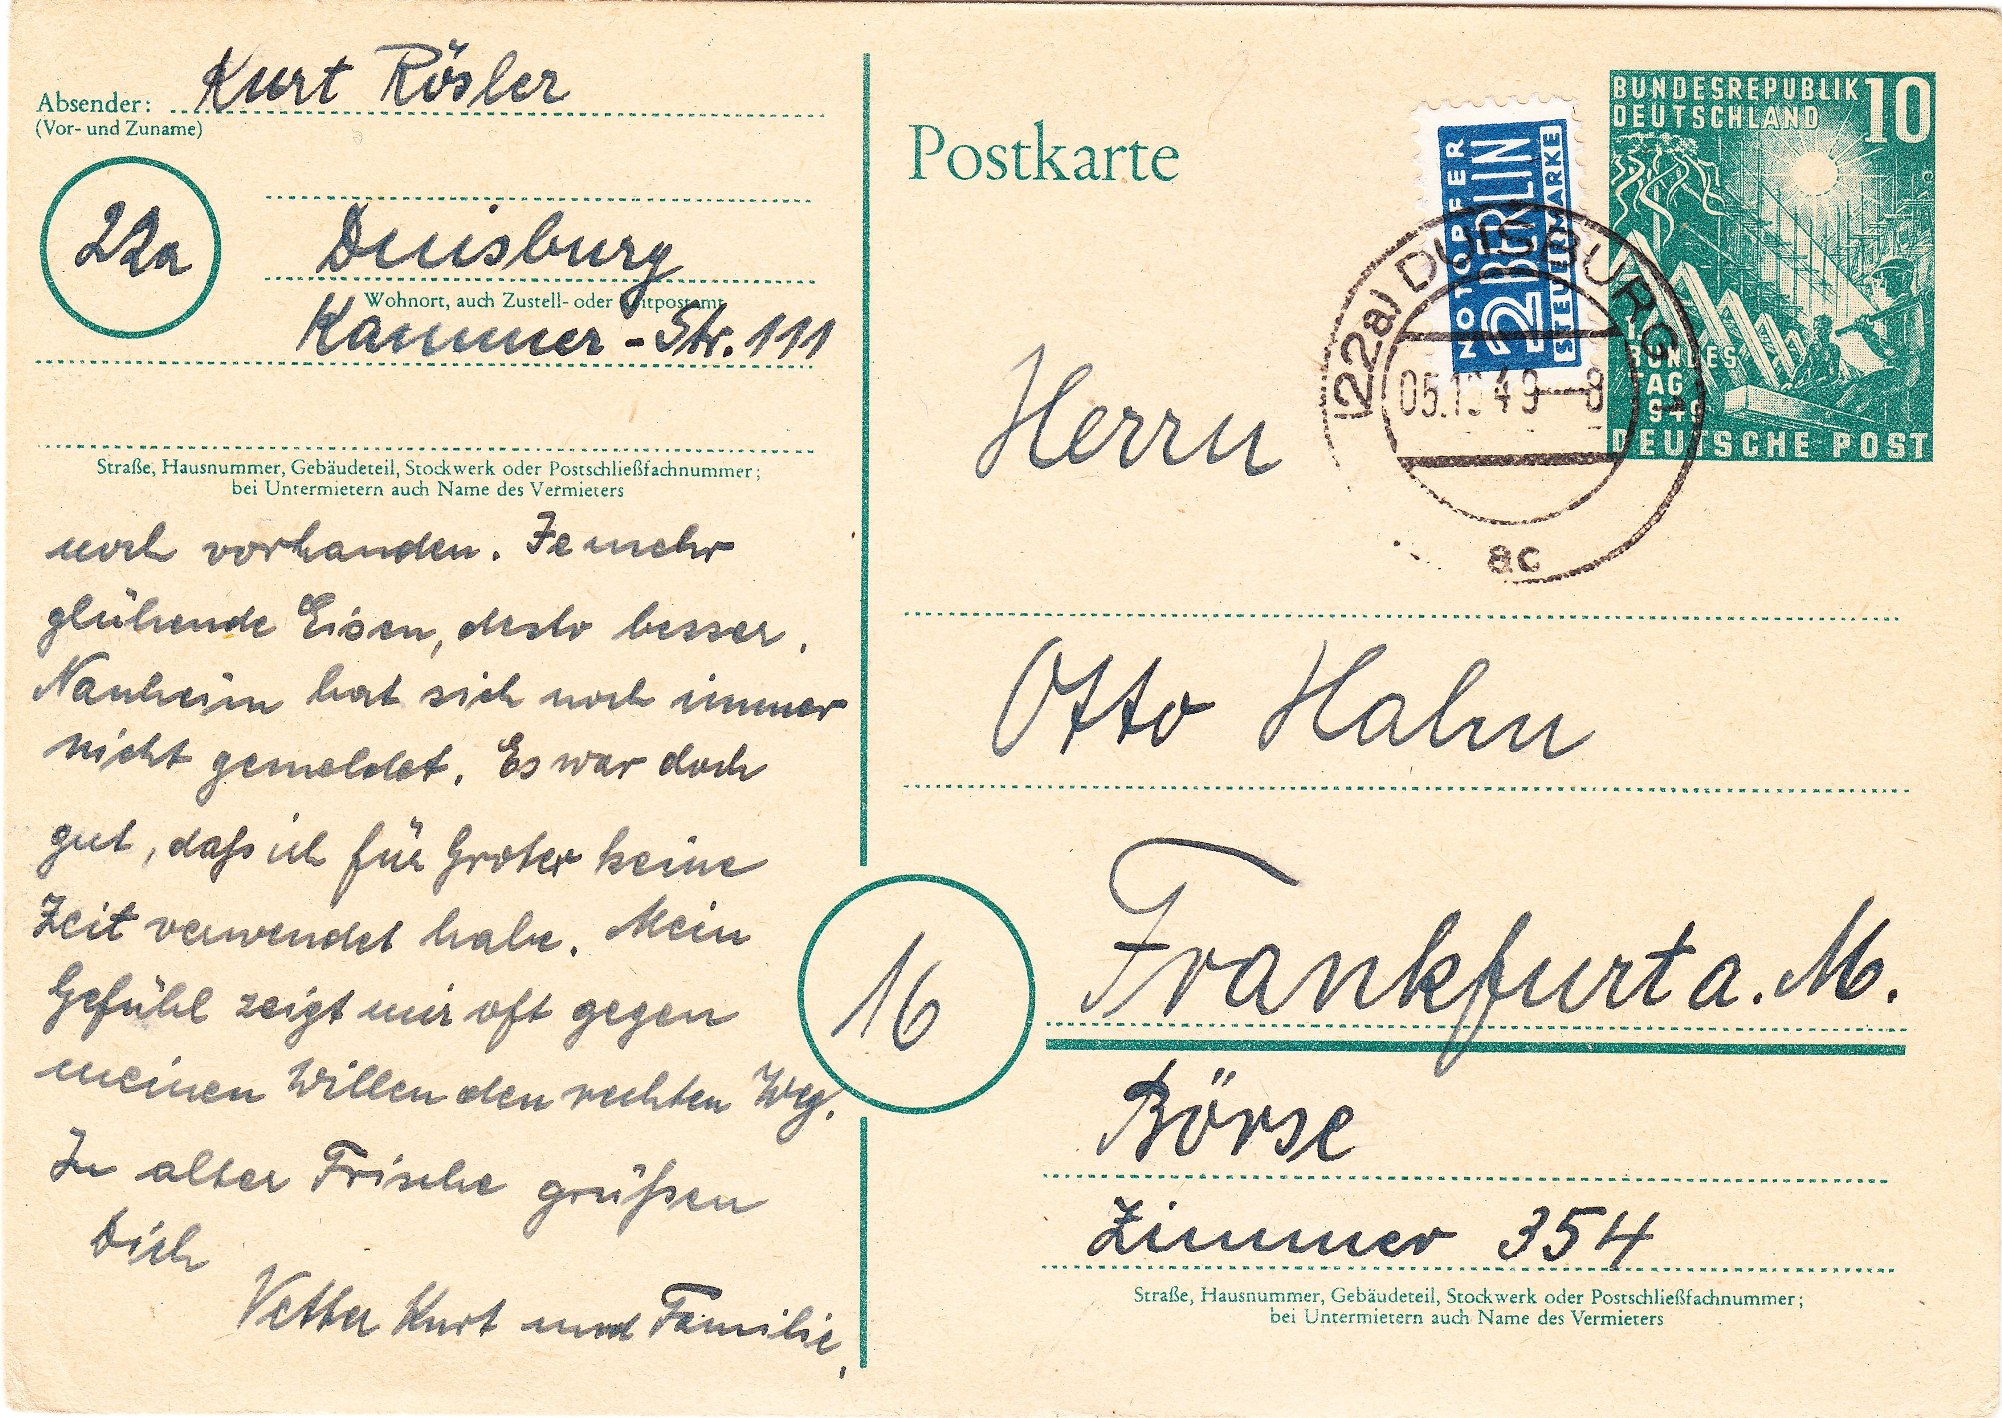 Absender: Kurt Rösler
(Vor- und Zuname)
22a
Duisburg
Wohnort, auch Zustell- oder Leitpostamt
Kammer-Str. 111
Straße, Hausnummer, Gebäudeteil, Stockwerk oder Postschließfachnummer;
bei Untermietern auch Name des Vermieters
noch vorhanden. Je mehr
glühende Eisen, desto besser.
Nauheim hat sich noch immer
nicht gemeldet. Es war doch
gut, daß ich für Groter keine
Zeit verwendet habe. Mein
Gefühl zeigt mir oft gegen
meinen Willen den rechten Weg.
In alter Frische grüßen
Dich
Vetter Kurt und Familie.
Postkarte
NOTOPFER
2 BERLIN
STEUERMARKE
BUNDESREPUBLIK
DEUTSCHLAND
10
1.
BUNDES
TAG
1949
DEUTSCHE POST
(22a) DUISBURG 1
05.10.49 - 8
ac
Herrn
Otto Hahn
16
Frankfurt a. M.
Börse
Zimmer 354
Straße, Hausnummer, Gebäudeteil, Stockwerk oder Postschließfachnummer;
bei Untermietern auch Name des Vermieters